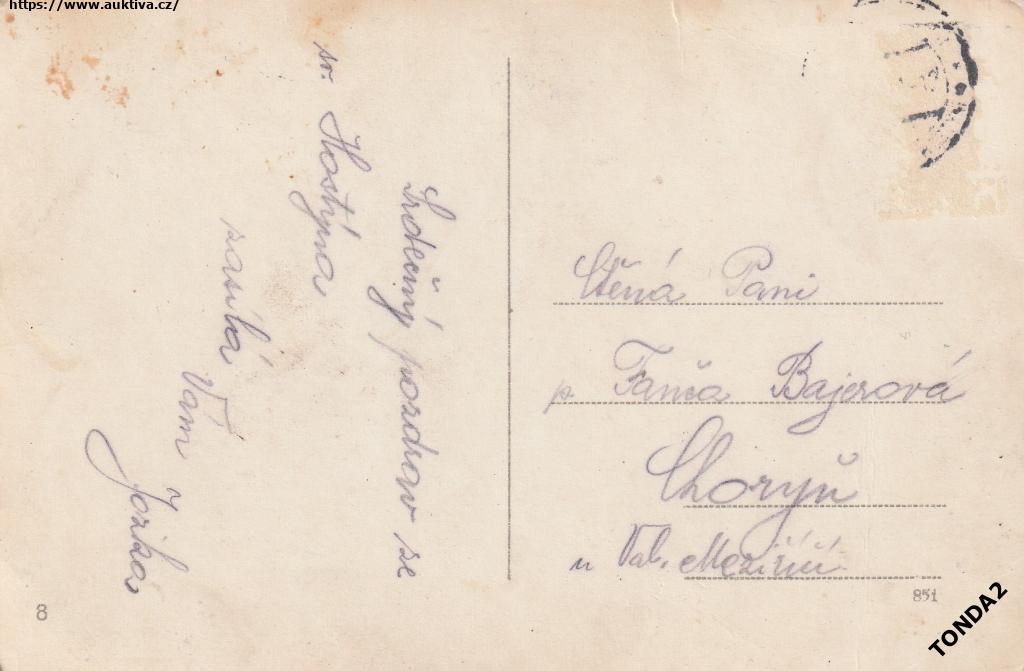 https://www.auktiva.cz/
Srdečný pozdrav ze
sv. Hostýna
zasílá
Vám
Jožka
Ctěná Paní
p. Fanča Bajerová
Choryň
u Val. Meziříčí
851
8
TONDA2